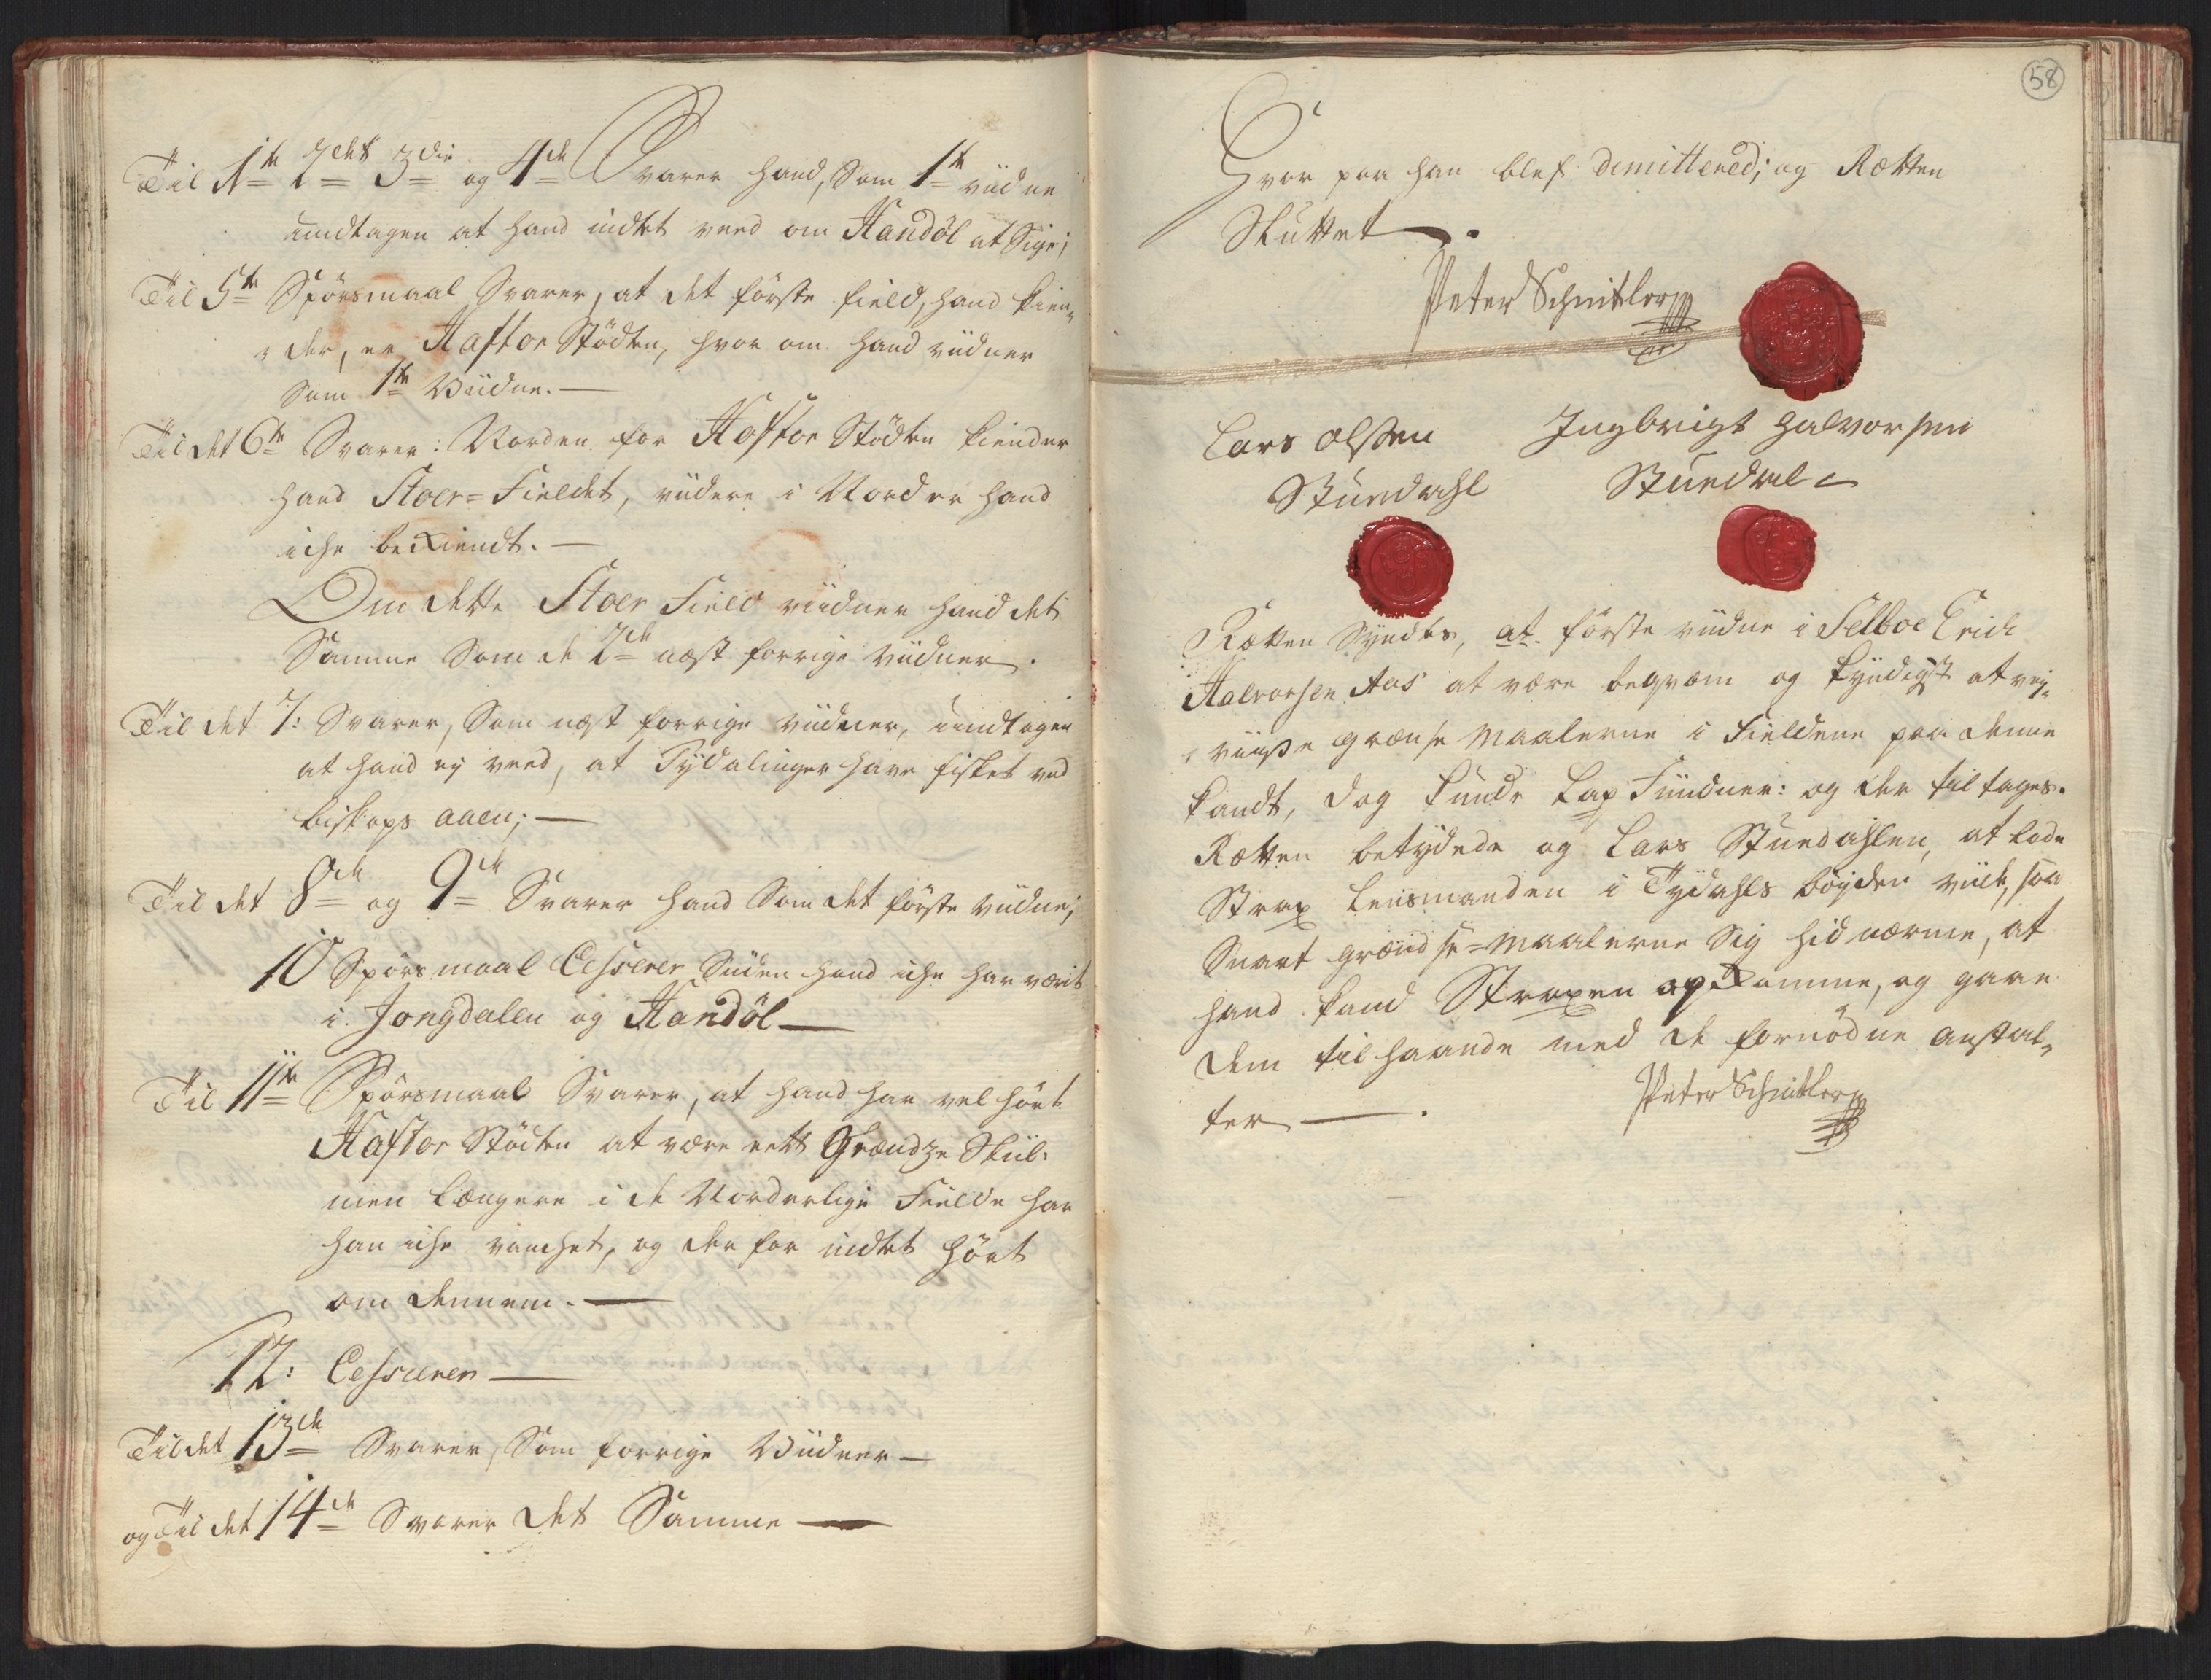 Til 1te 2det 3die og 4de Svarer hand, Som 1te viidne
undtagen at hand indtet veed om Handöl at Sige;
Til 5te Spörsmaal Svarer, at det förste field, hand kien„
„der, er Haftor Stödten, hvor om hand viidner
Som 1te Viidne. —
Til det 6te Svarer: Norden for Haftor Stödten kiender
hand Stoer=Fieldet, viidere i Nord er hand
iche bekiendt. —
Om dette Stoer Field viidner hand det
Samme Som de 2de næst forrige viidner.
Til det 7: Svarer, Som næst forrige viidner, undtagen
at hand ej veed, at Tydalinger have fisket ved
biskops aaen; —
Til det 8de og 9de Svarer hand Som det förste viidne;
10 Spörsmaal Cesserer Siiden hand iche har værit
i Jongdalen og Handöl —
Til 11te Spörsmaal Svarer, at hand har vel hört
Haftor Stödten at være rett Grændze Skiil:
men længere i de Norderlige Fielde har
han iche vanchet, og der for indtet hört
om dennem. —
12: Cesserer —
Til det 13de Svarer, Som forrige Viidner —
og Til det 14de Svarer det Samme —
58
Hvor paa han blef demittered; og Rætten
Sluttet.
Peter Schnitler
Lars olssen Ingbrigt Halvorsen
Stuedahl Stuedal
Rætten Syndtes, at förste viidne i Selboe Erich
Halvorsen Aas at være beqvem og kyndigst at vej„
„viisse grænse Maalerne i Fieldene paa denne
kandt, dog kunde Lap Fiinder: og der til tages.
Rætten betydede og Lars Stuedahlen, at lade
Strax Lensmanden i Tydahls böyden viide, saa
Snart grændse=Maalerne Sig hid nærme, at
hand kand Straxen opkomme, og gaae
dem til haande med de fornödne anstal„
ter — .
Peter Schnitler